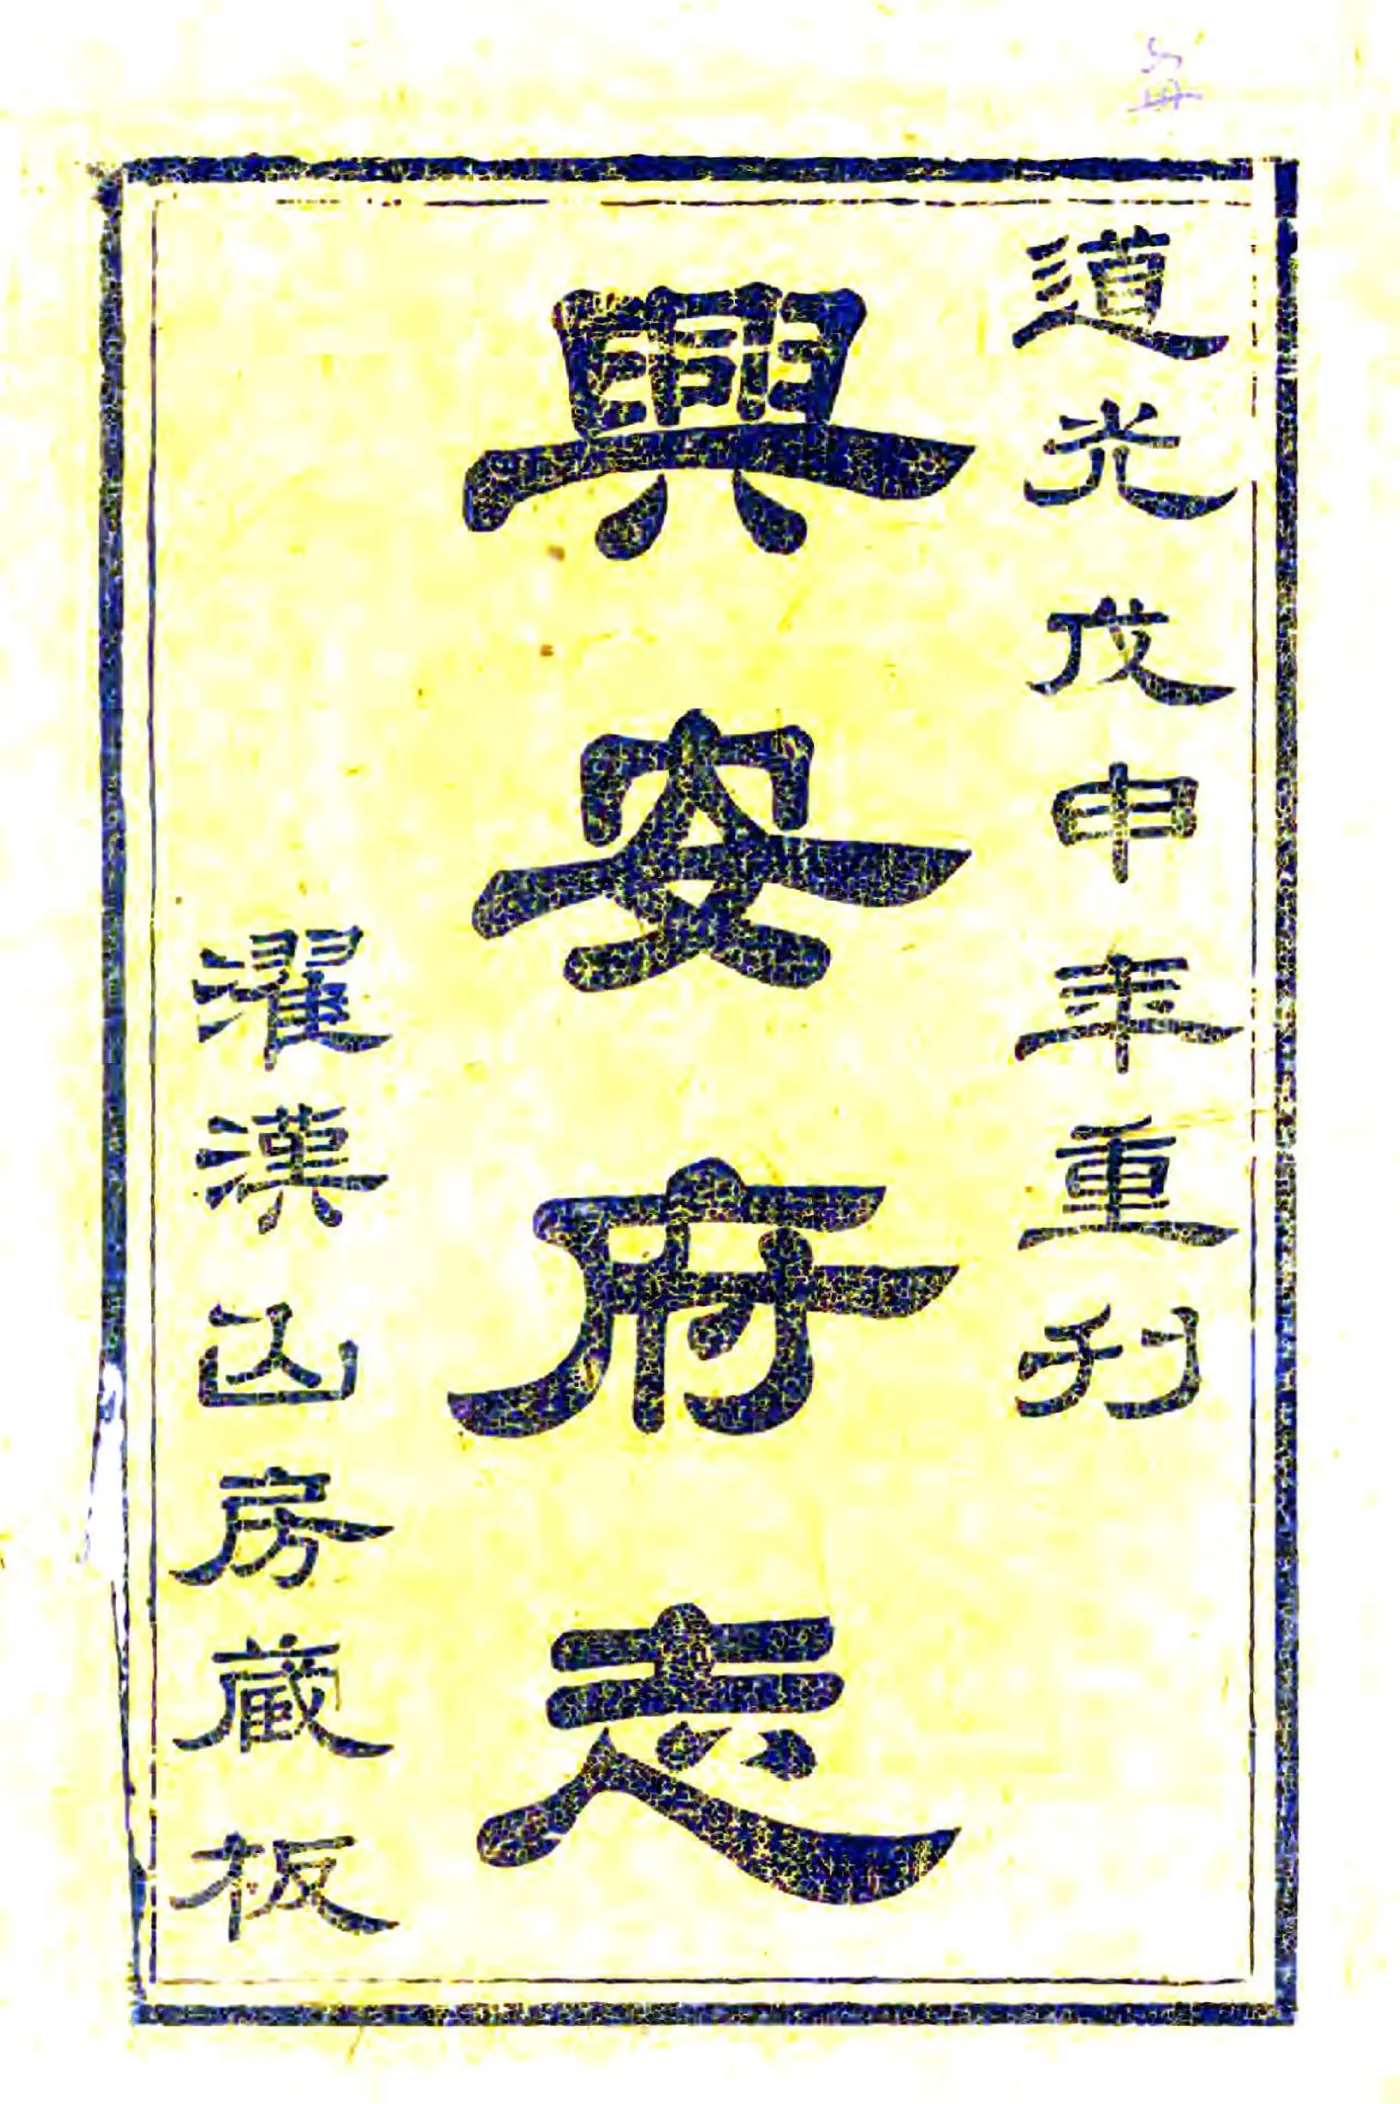 道光戊申年重刊
興安府志
濯漢山房藏板